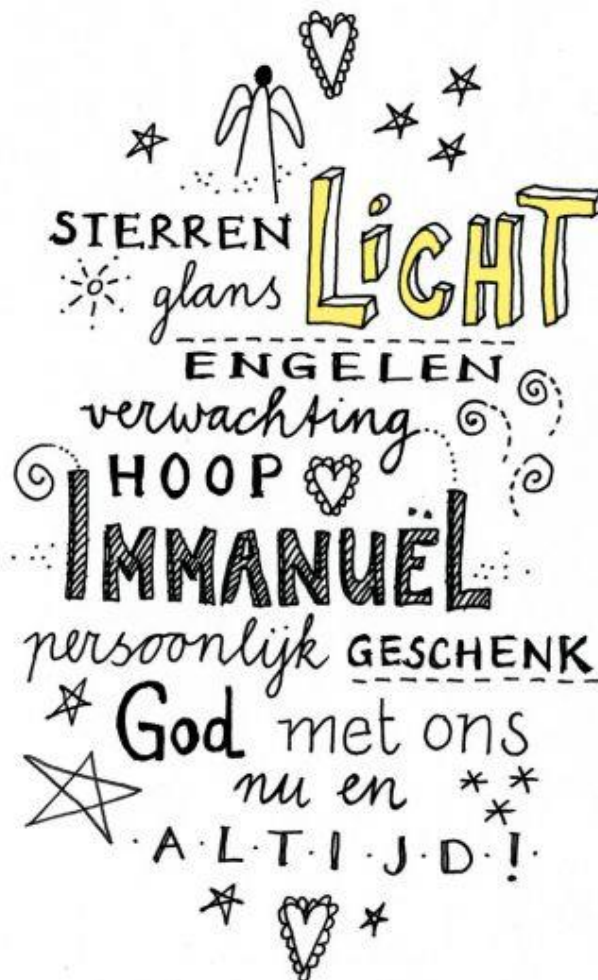 STERREN LiCHT
glans
ENGELEN
verwachting
HOOP
IMMANUËL
persoonlijk GESCHENK
God met ons
nu en
A·L·T·I·J·D·!